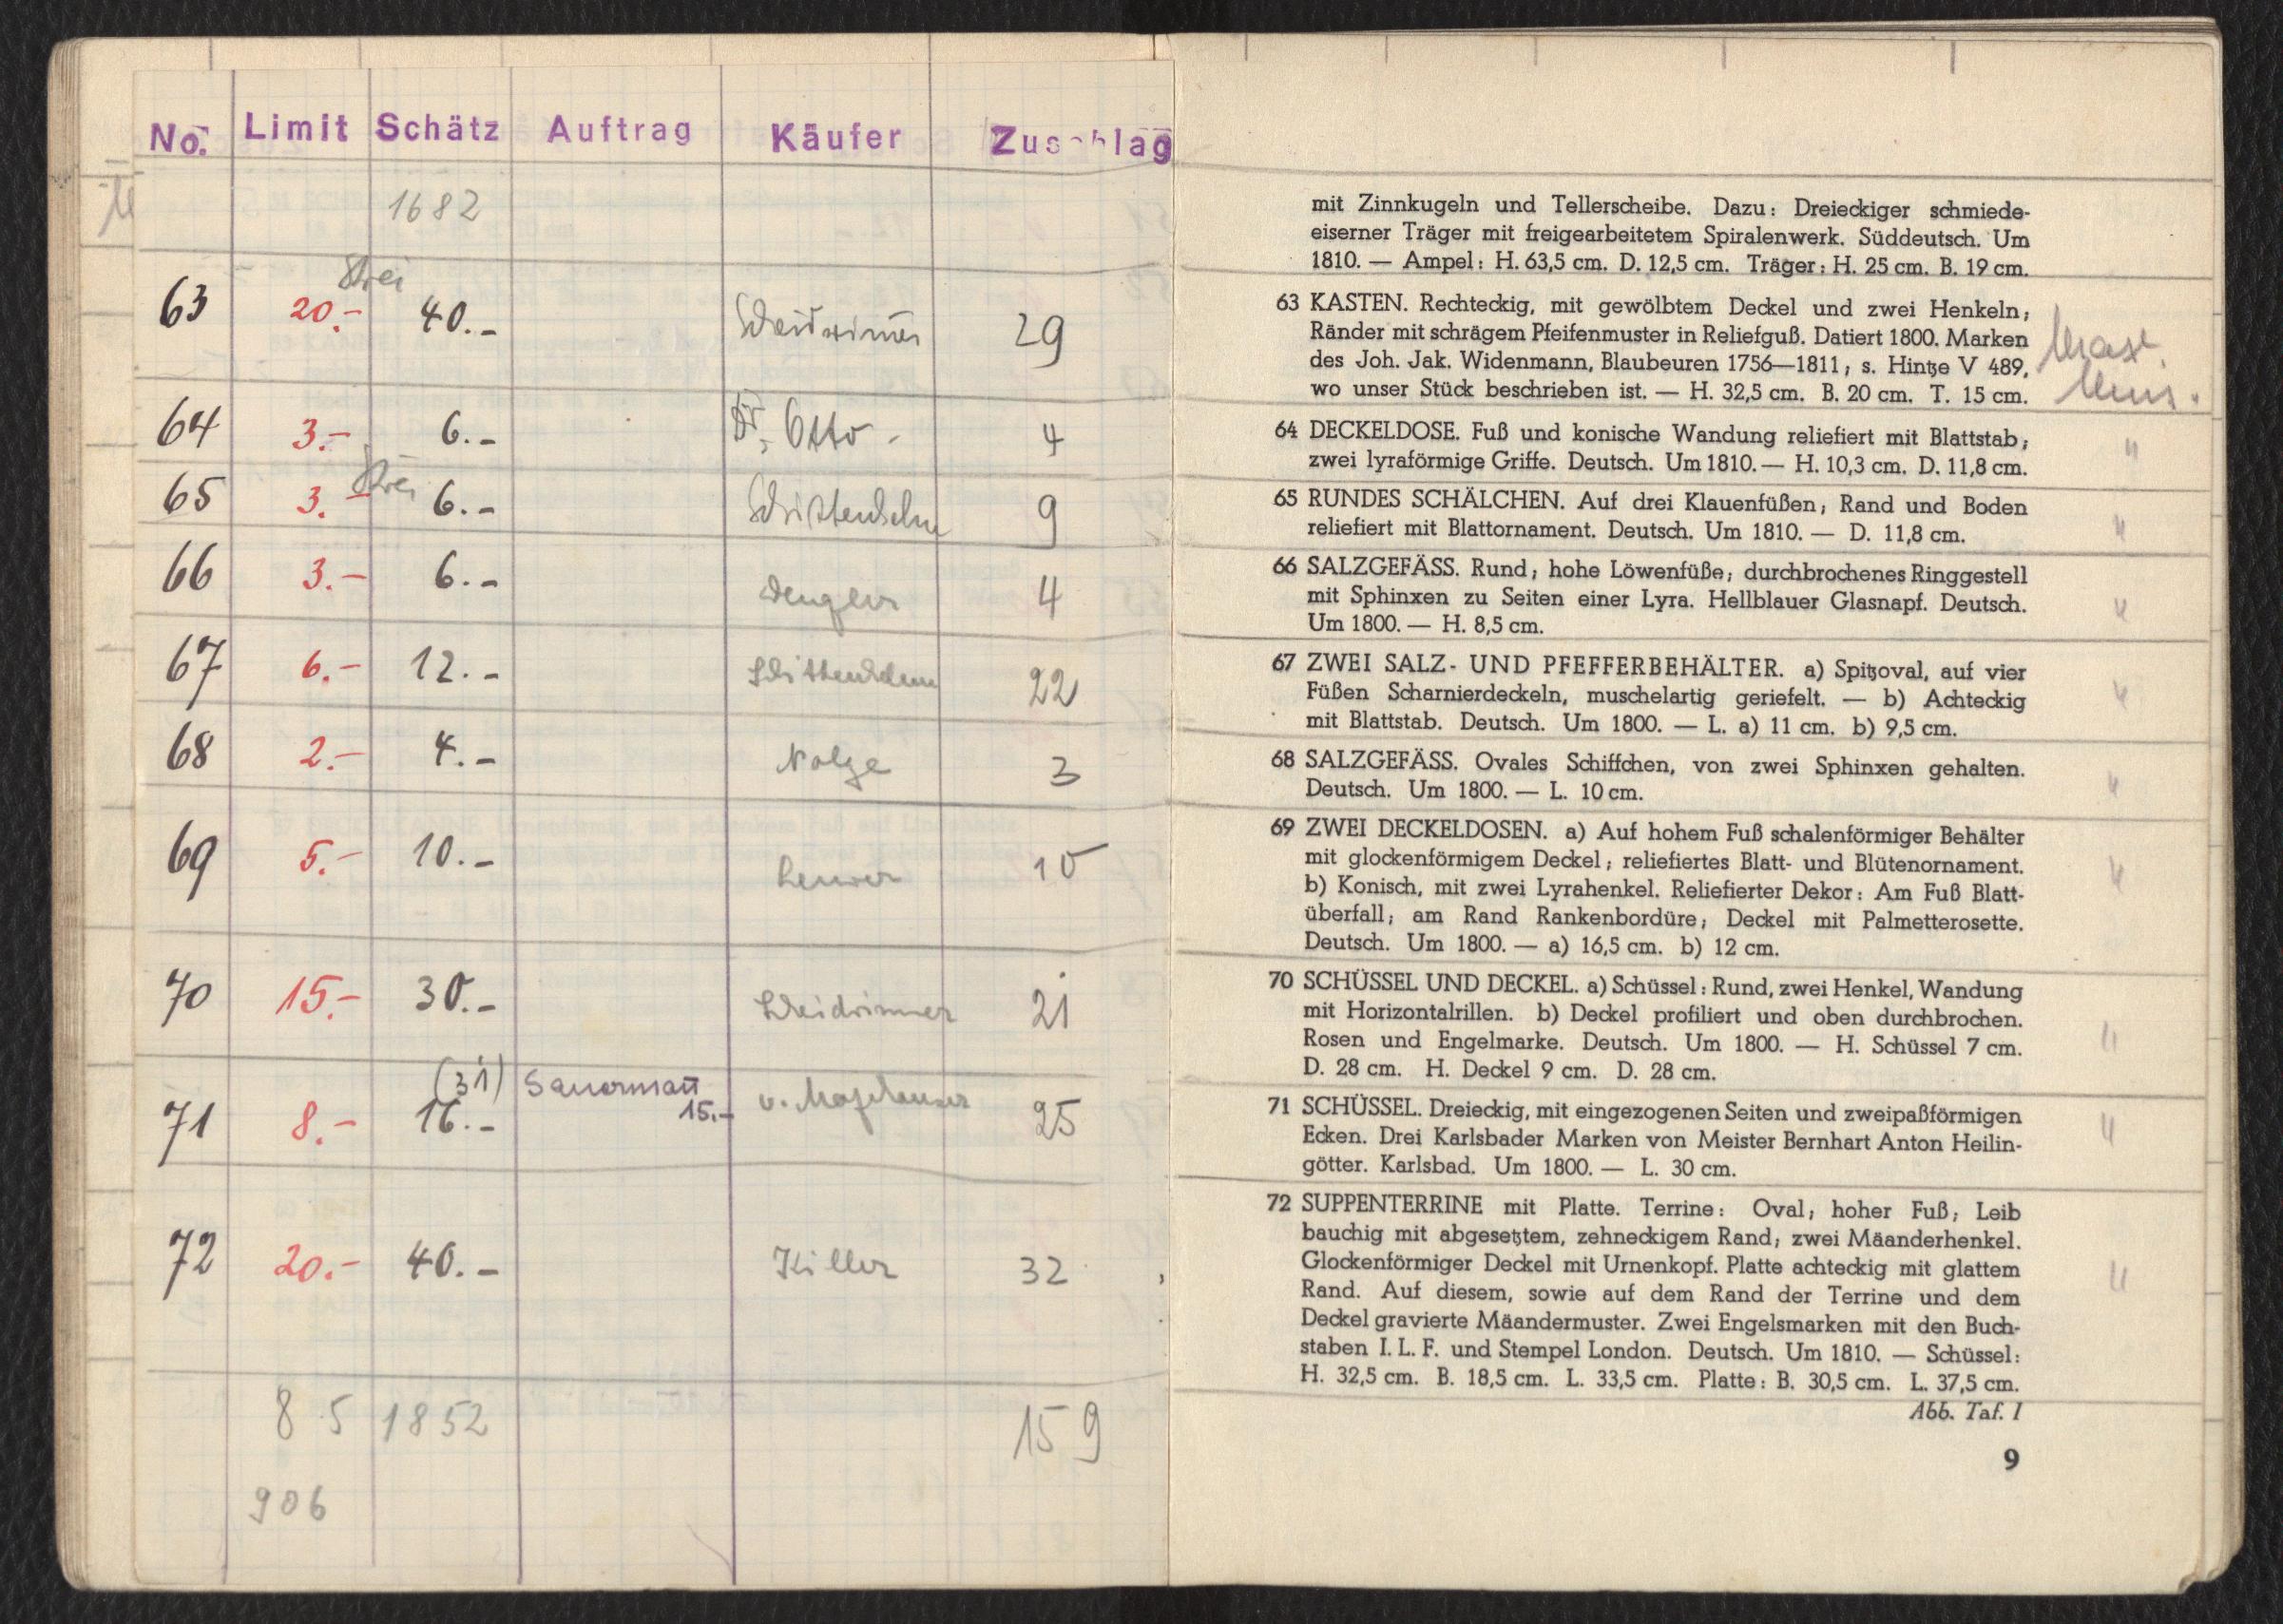 No. Limit Schätz Auftrag Käufer Zuschlag
1682
63 20.- 40.- 29
64 3.- 6.- Dr. Otto - 4
65 3.- 6.- 9
66 3.- 6.- Dengler 4
67 6.- 12.- 22
68 2.- 4.- 3
69 5.- 10.- 10
70 15.- 30.- Weidinner 21
(31) Sauermañ
71 8.- 16.- 15.- 25
72 20.- 40.- Killer 32
85 1852 159
906
mit Zinnkugeln und Tellerscheibe. Dazu: Dreieckiger schmiede-
eiserner Träger mit freigearbeitetem Spiralenwerk. Süddeutsch. Um
1810. — Ampel: H. 63,5 cm. D. 12,5 cm. Träger: H. 25 cm. B. 19 cm.
63 KASTEN. Rechteckig, mit gewölbtem Deckel und zwei Henkeln;
Ränder mit schrägem Pfeifenmuster in Reliefguß. Datiert 1800. Marken
des Joh. Jak. Widenmann, Blaubeuren 1756—1811; s. Hintze V 489,
wo unser Stück beschrieben ist. — H. 32,5 cm. B. 20 cm. T. 15 cm.
64 DECKELDOSE. Fuß und konische Wandung reliefiert mit Blattstab;
zwei lyraförmige Griffe. Deutsch. Um 1810. — H. 10,3 cm. D. 11,8 cm.
65 RUNDES SCHÄLCHEN. Auf drei Klauenfüßen; Rand und Boden
reliefiert mit Blattornament. Deutsch. Um 1810. — D. 11,8 cm.
66 SALZGEFÄSS. Rund; hohe Löwenfüße; durchbrochenes Ringgestell
mit Sphinxen zu Seiten einer Lyra. Hellblauer Glasnapf. Deutsch.
Um 1800. — H. 8,5 cm.
67 ZWEI SALZ- UND PFEFFERBEHÄLTER. a) Spitzoval, auf vier
Füßen Scharnierdeckeln, muschelartig geriefelt. — b) Achteckig
mit Blattstab. Deutsch. Um 1800. — L. a) 11 cm. b) 9,5 cm.
68 SALZGEFÄSS. Ovales Schiffchen, von zwei Sphinxen gehalten.
Deutsch. Um 1800. — L. 10 cm.
69 ZWEI DECKELDOSEN. a) Auf hohem Fuß schalenförmiger Behälter
mit glockenförmigem Deckel; reliefiertes Blatt- und Blütenornament.
b) Konisch, mit zwei Lyrahenkel. Reliefierter Dekor: Am Fuß Blatt-
überfall; am Rand Rankenbordüre; Deckel mit Palmetterosette.
Deutsch. Um 1800. — a) 16,5 cm. b) 12 cm.
70 SCHÜSSEL UND DECKEL. a) Schüssel: Rund, zwei Henkel, Wandung
mit Horizontalrillen. b) Deckel profiliert und oben durchbrochen.
Rosen und Engelmarke. Deutsch. Um 1800. — H. Schüssel 7 cm.
D. 28 cm. H. Deckel 9 cm. D. 28 cm.
71 SCHÜSSEL. Dreieckig, mit eingezogenen Seiten und zweipaßförmigen
Ecken. Drei Karlsbader Marken von Meister Bernhart Anton Heilin-
götter. Karlsbad. Um 1800. — L. 30 cm.
72 SUPPENTERRINE mit Platte. Terrine: Oval; hoher Fuß; Leib
bauchig mit abgesetztem, zehneckigem Rand; zwei Mäanderhenkel.
Glockenförmiger Deckel mit Urnenkopf. Platte achteckig mit glattem
Rand. Auf diesem, sowie auf dem Rand der Terrine und dem
Deckel gravierte Mäandermuster. Zwei Engelsmarken mit den Buch-
staben I. L. F. und Stempel London. Deutsch. Um 1810. — Schüssel:
H. 32,5 cm. B. 18,5 cm. L. 33,5 cm. Platte: B. 30,5 cm. L. 37,5 cm.
Abb. Taf. 1
9